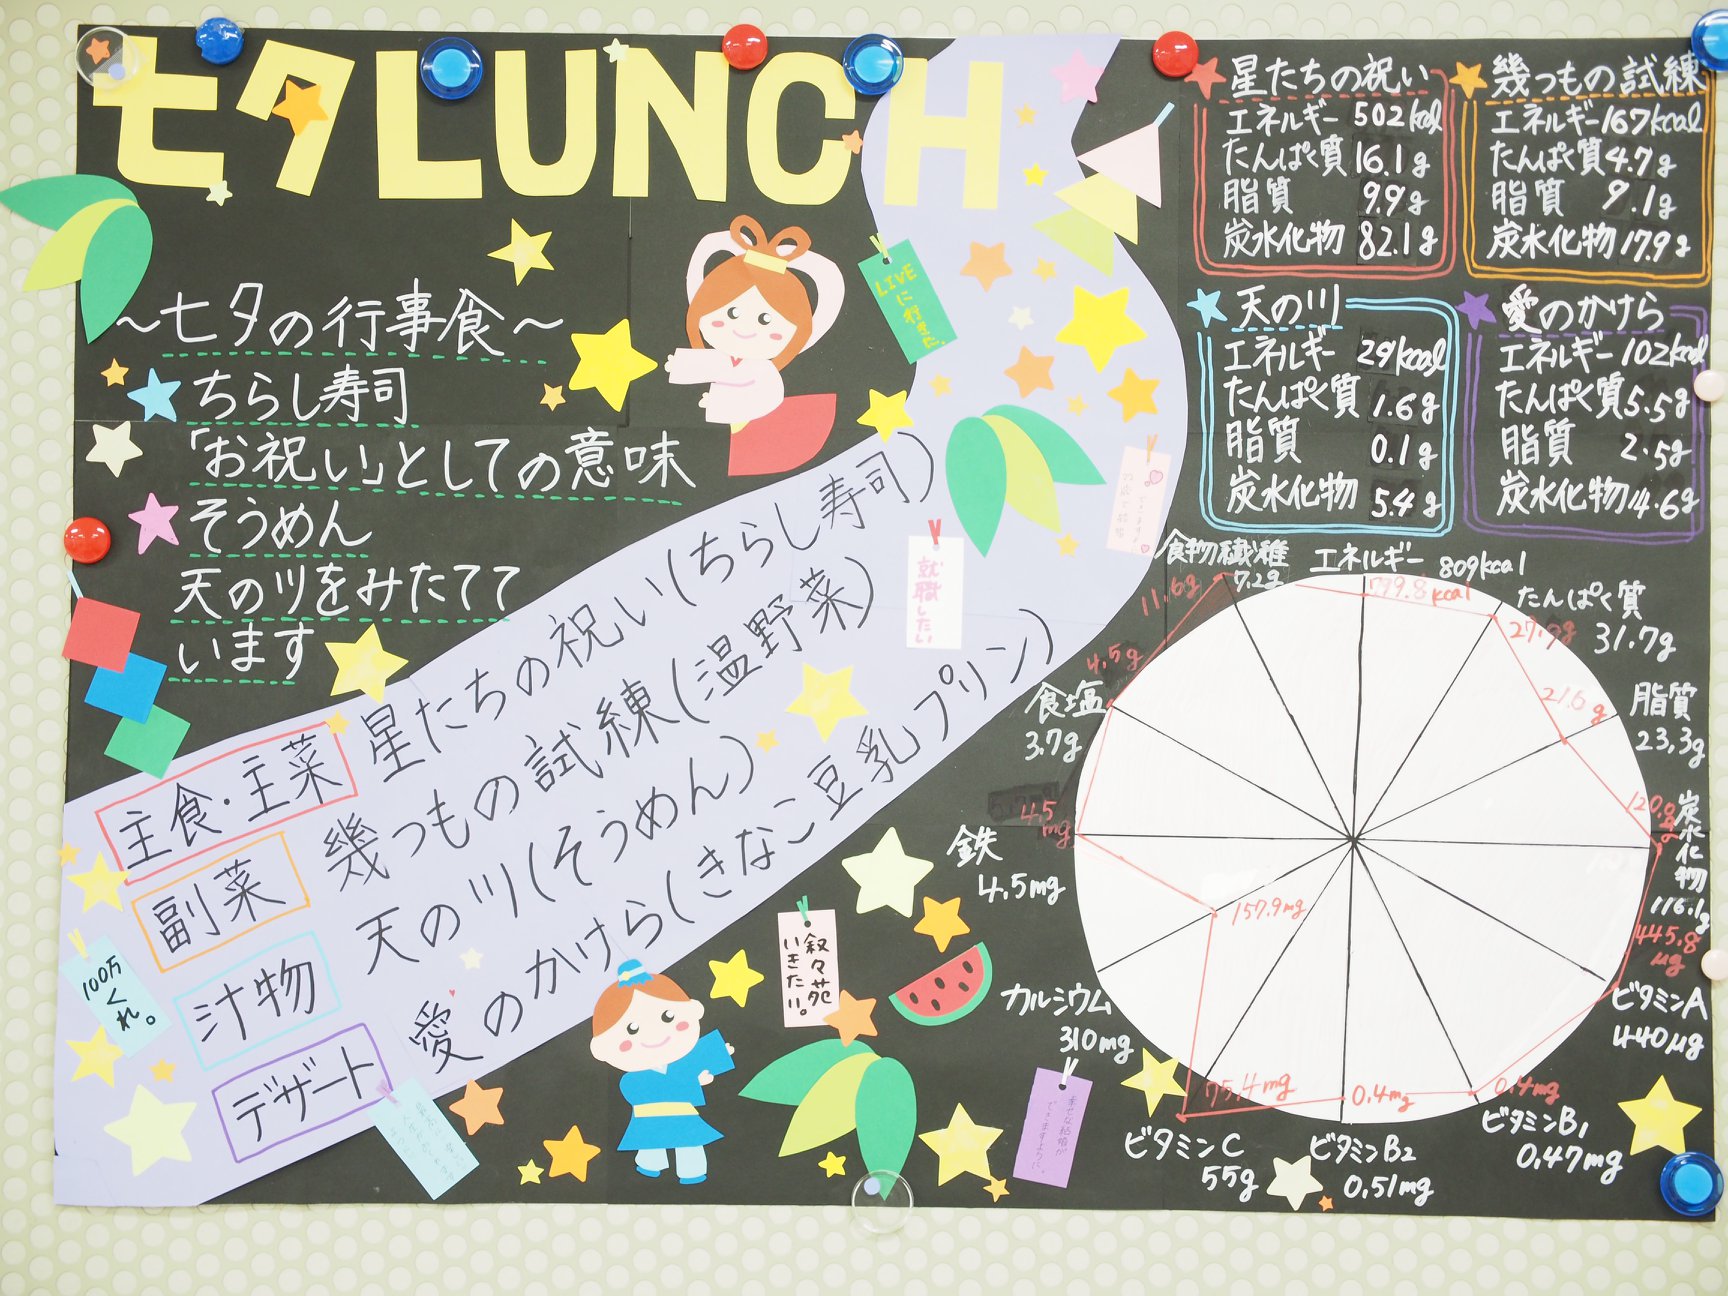 七夕LUNCH
～七夕の行事食～
ちらし寿司
「お祝い」としての意味
そうめん
天の川をみたてて
います
主食・主菜 星たちの祝い(ちらし寿司)
副菜 幾つもの試練(温野菜)
汁物 天の川(そうめん)
デザート 愛のかけら(きなこ豆乳プリン)
LIVE
に行きた
就職したい
100万
くれ。
叙々苑
いきたい!!
幸せな結婚が
できますように。
星たちの祝い
エネルギー 502kcal
たんぱく質 16.1g
脂質 9.9g
炭水化物 82.1g
幾つもの試練
エネルギー 167kcal
たんぱく質 4.7g
脂質 9.1g
炭水化物 17.9g
天の川
エネルギー 29kcal
たんぱく質 1.6g
脂質 0.1g
炭水化物 5.4g
愛のかけら
エネルギー 102kcal
たんぱく質 5.5g
脂質 2.5g
炭水化物 14.6g
エネルギー 809kcal
799.8kcal
たんぱく質
31.7g
27.9g
脂質
23.3g
21.6g
炭水化物
116.1g
120.8g
ビタミンA
440μg
445.8μg
ビタミンB1
0.47mg
0.4mg
ビタミンB2
0.51mg
0.4mg
ビタミンC
55g
75.4mg
カルシウム
310mg
157.9mg
鉄
4.5mg
4.5mg
食塩
3.7g
4.5g
食物繊維
7.2g
11.6g